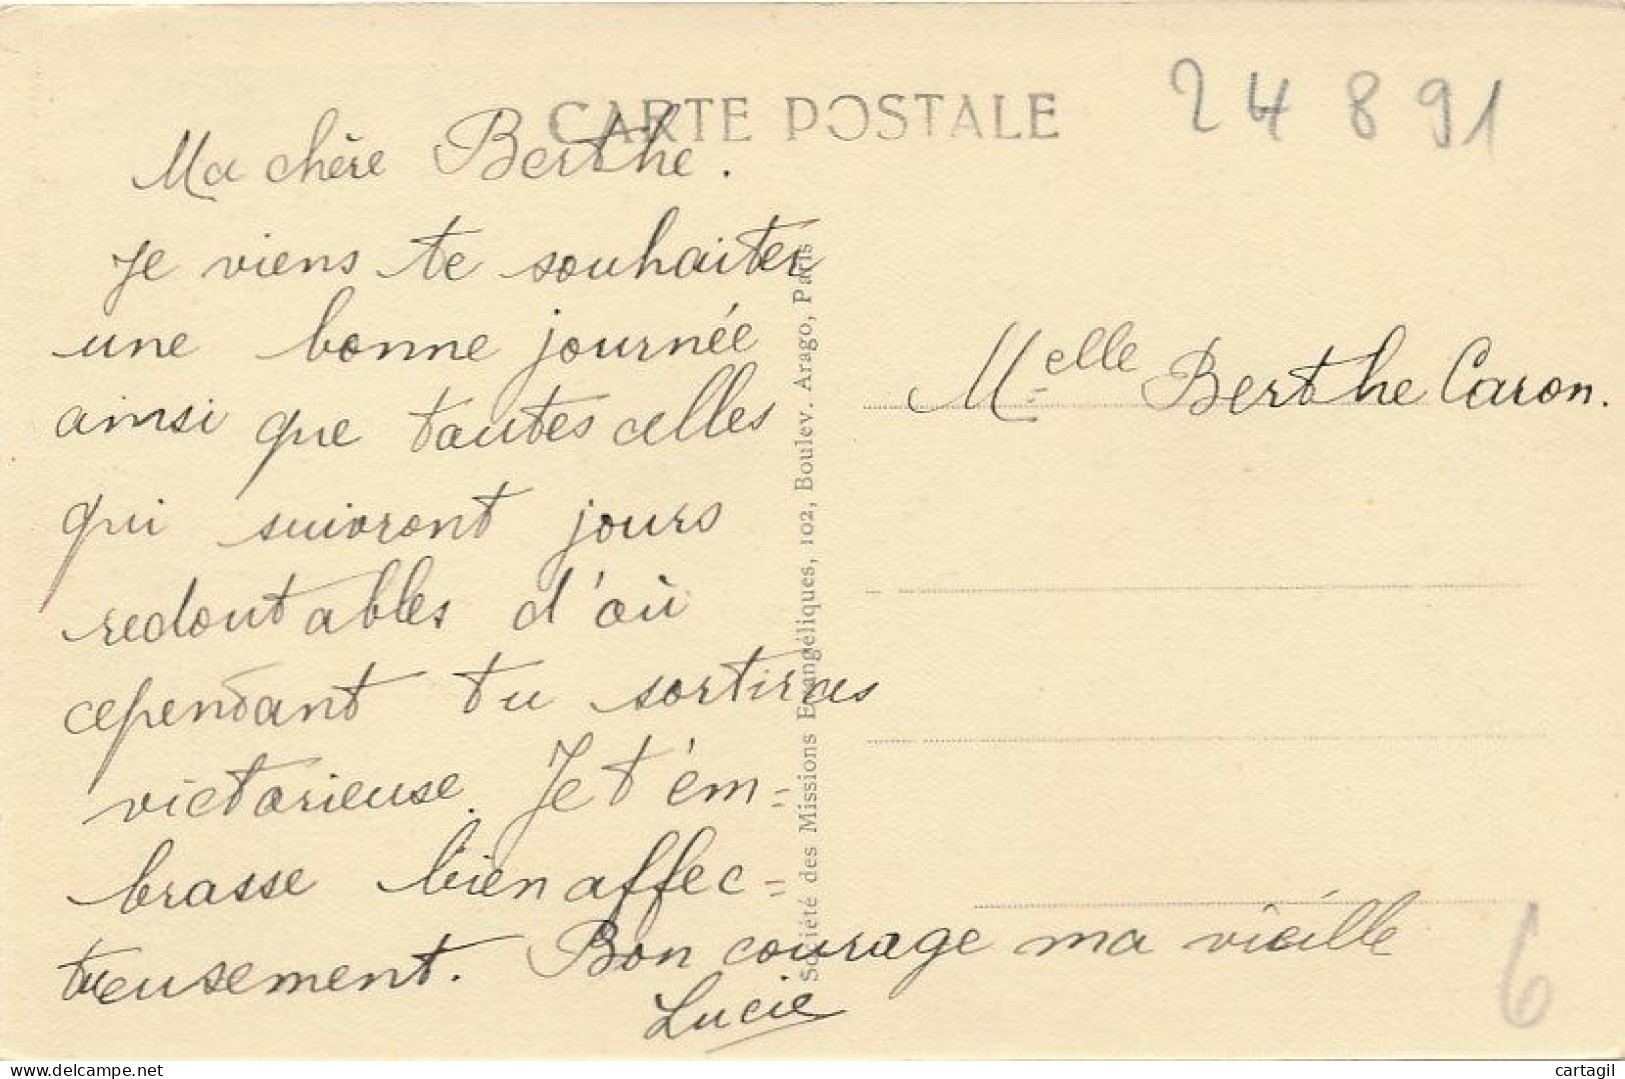 CARTE POSTALE
24891
Ma chère Berthe.
Je viens te souhaiter
une bonne journée
ainsi que toutes celles
qui suivront jours
redoutables d'où
cependant tu sortiras
victorieuse. Je t'em-
brasse bien affec-
tueusement. Bon courage ma vieille
Lucie
Société des Missions Evangéliques, 102, Boulev. Arago, Paris
Melle Berthe Caron.
6
delcampe.net
cartagil